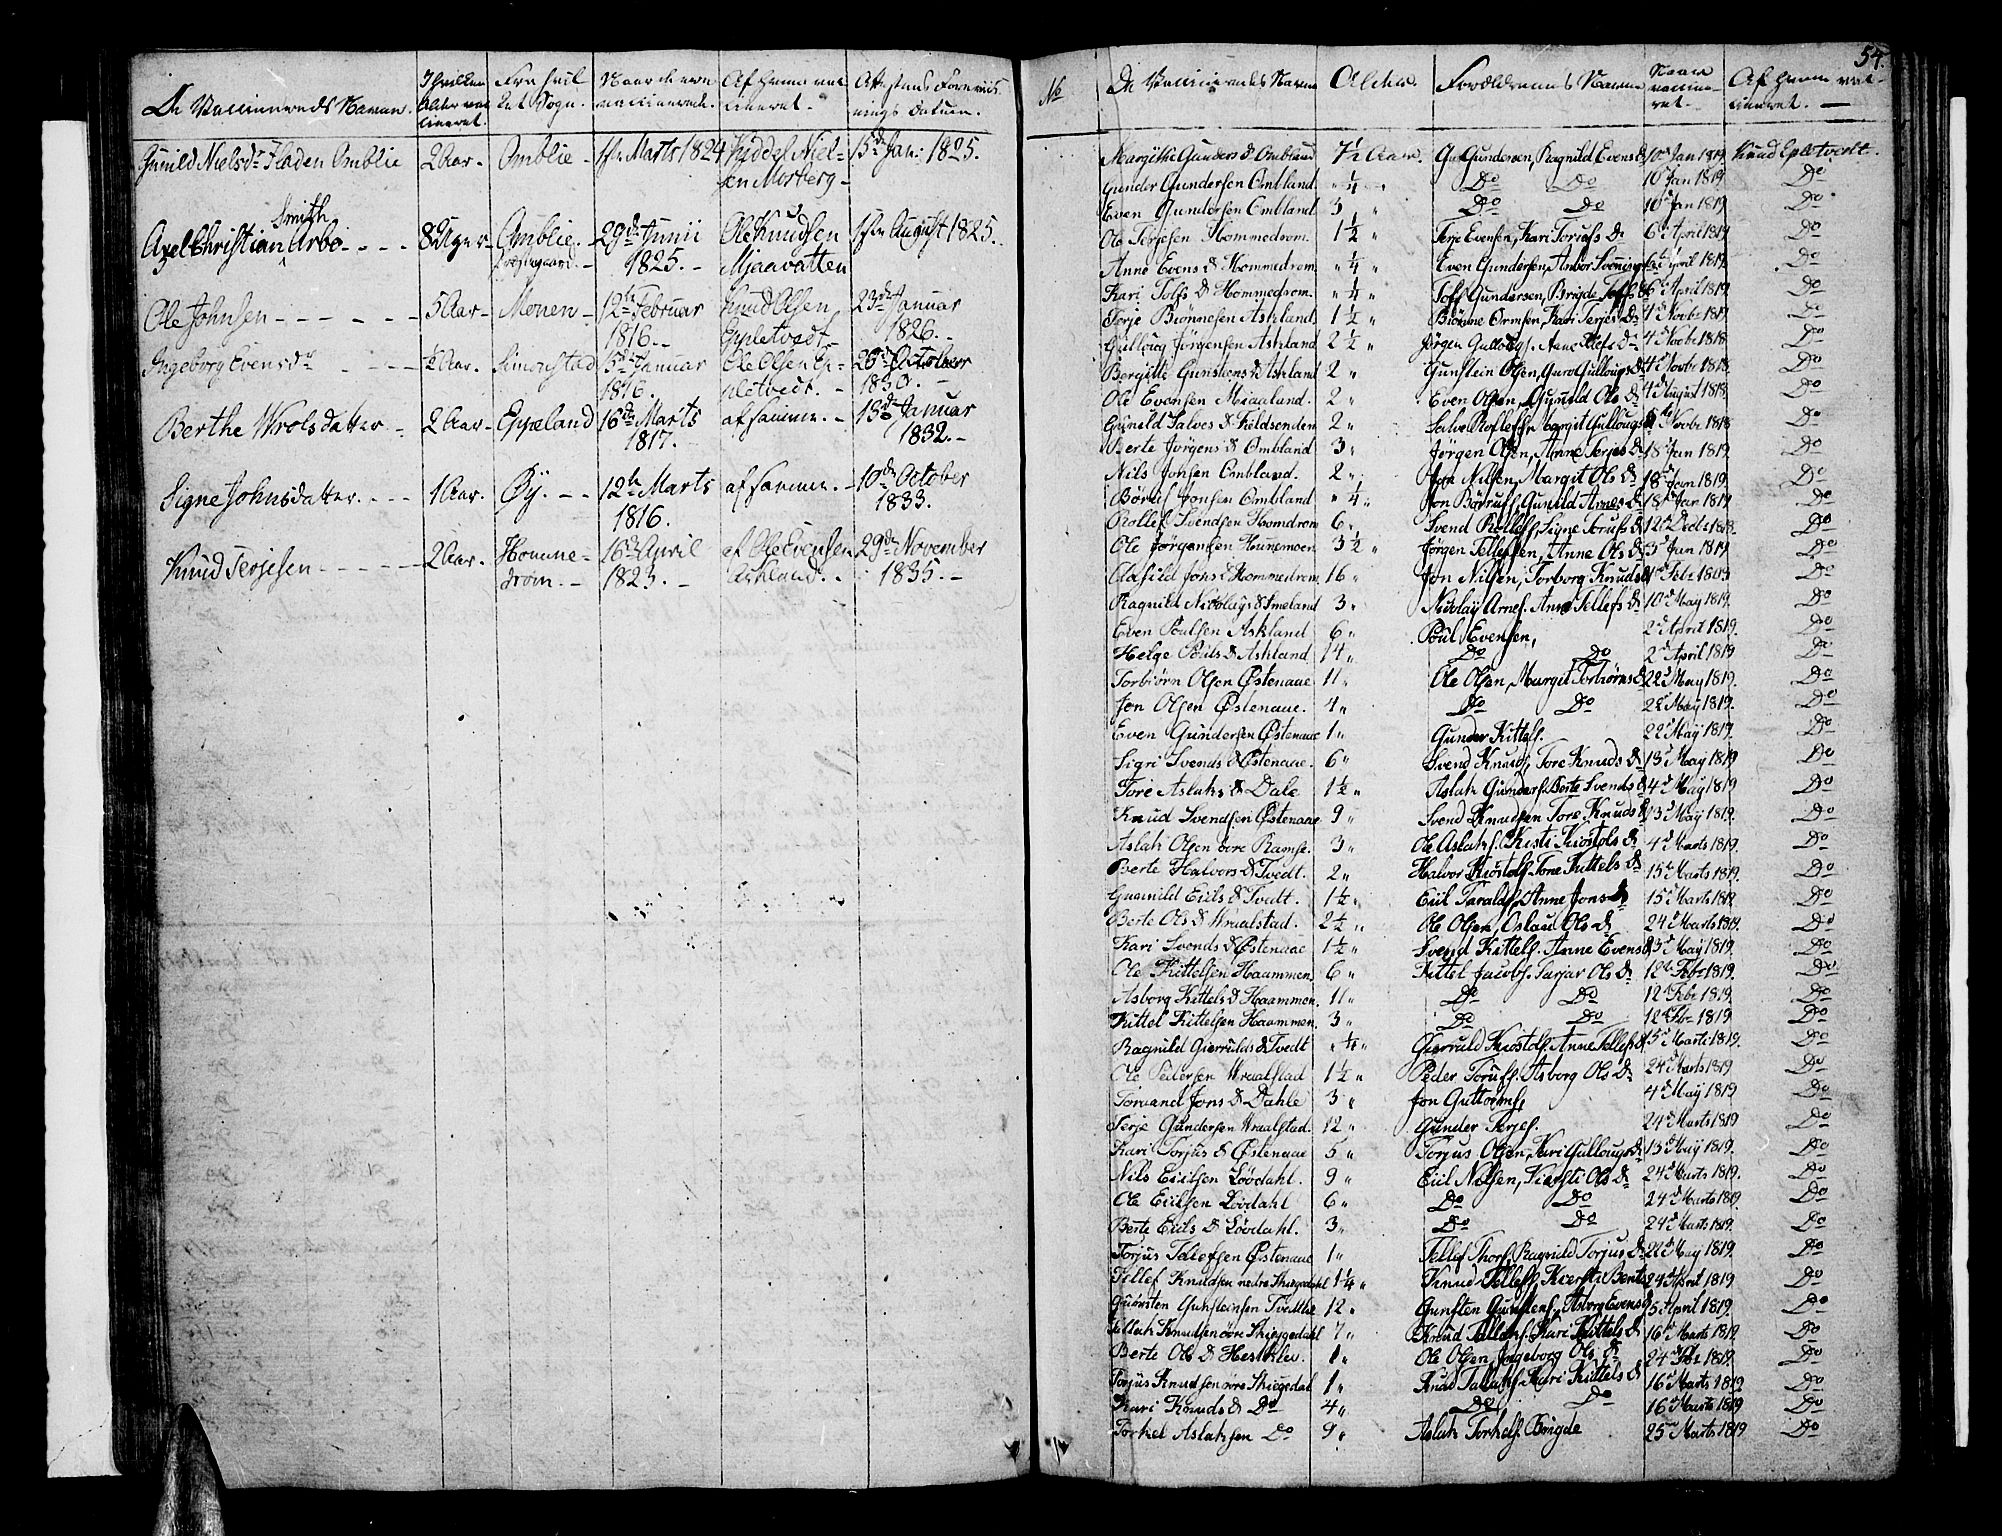 De Vaccineredes Navne.
I hvilken Alder vaccineret.
Fra hvilket Sogn.
Naar de ere vaccinerede.
Af hvem vaccineret.
Attestens Forevisnings Datum.
Gunild Nielsdr Fladen Omblie 2 Aar. Omblie Marts 1824 Niel-
sen Morberg 15de Jan: 1825.
Axel Christian Smith Arbo 8 Uger Omblie 29de Junii Ole Knudsen August 1825.
1825. Mjaavatten
Ole Johnsen 5 Aar Monen 12te Februar Knud Olsen 23de Januar
1816. Eppletvedt 1826.
Ingeborg Evensdr Aar. Simonstad 15de Januar Ole Olsen Ep- October
1816. pletvedt. 1830.
Berthe Wrolsdatter 2 Aar Eppeland 16de Marts af samme. 13de Januar
1817. 1832.
Signe Johnsdatter 1 Aar. Øy. 12te Marts af samme. 10de October
1816. 1833.
Knud Terjesen 2 Aar Homme- 16de April af Ole Evensen 29de November
drom. 1823. Askland. 1835.
54.
No De Vaccineredes Navne Alder. Forældrenes Navne Naar vaccineret. Af hvem vaccineret.
Margithe Gunders D Ombland 7½ Aar. Gundersen, Ragnild Evens D 10d Jan 1819 Knud Epletvedt.
Gunder Gundersen Ombland " ¼ Do Do 10d Jan 1819 Do
Even Gundersen Ombland 3 " Do Do 10d Jan 1819 Do
Ole Terjesen Hommedrom. 1½ " Terje Evensen, Kari Torjufs D 6d April 1819 Do
Anne Evens D Hommedrom " ¼ " Even Gundersen, Anbor 6d April 1819 Do
Kari Tolfs D Hommedrom. " ¼ " Tolf Gundersen, Brigde Tolfs D 6d April 1819 Do
Terje Biønnesen Askland 1½ " Biønne Ormsen, Kari Terjes D Novbr 1819 Do
Gulloug Jørgensen Askland 2½ " Jørgen Gullougs. Anne D 4d Novbr 1818 Do
Bergitte Gunstens D Askland 2 " Gunstein Olsen, Guro Gullougs D 4d Novbr 1818. Do
Ole Evensen Miaaland. 2 " Even Olsen, Gunild Ols D 4d August 1818. Do
Gunild Salves D Fieldsenden 2 " Salve Rollefs. Margit Gullougs Novbr 1818 Do
Berte Jørgens D Ombland 3 " Jørgen Olsen, Anne Terjes D 18d Jan 1819. Do
Nils Jonsen Ombland. 2 " Jon Nilsen, Margit Ols D 18d Jan 1819. Do
Jonsen Ombland " ¼ " Jon Gunild Arnes D 18d Jan 1819 Do
Rollef Svendsen Homdrom 6 " Svend Rollefs, Signe Torjufs D 12d Decbr 1818. Do
Ole Jørgensen Hunemoen 3½ " Jørgen Tellefsen, Anne Ols D 3d Jan 1819. Do
Jons D Hommedrom 16 " Jon Nilsen, Torborg Knuds D Febr 1803 Do
Ragnild Nicolays D Smeland 3 " Nicolay Arnes. Anne Tellefs D 10d May 1819. Do
Even Poulsen Askland 6 " Poul Evensen, 2d April 1819. Do
Helge Pouls D Askland 14 " Do Do 2d April 1819 Do
Torbiørn Olsen Østenaae 11 " Ole Olsen, Margit Torbiørns D 22d May 1819. Do
Jon Olsen Østenaae. 4 " Do Do 22d May 1819. Do
Even Gundersen Østenaae 1 " Gunder Kittels. 22d May 1819. Do
Sigri Svends D Østenaae. 6 " Svend Knuds, Tore Knuds D 13d May 1819 Do
Tore Aslaks D Dale 1½ " Aslak Gunders. Berte Svends D 4d May 1819 Do
Knud Svendsen Østenaae 9 " Svend Knudsen Tore Knuds D 13d May 1819. Do
Aslak Olsen øvre Ramse. 3 " Ole Aslaks. Kisti Kiøstols D 4d Marts 1819. Do
Berte Halvors D Tvedt. 2 " Halvor Kiøstols. Tone Kittels D 15d Marts 1819. Do
Gunnild Eiils D Tvedt. 1½ " Eiil Taralds, Anne Jons D 15d Marts 1819 Do
Berte Ols D Wraalstad. 2½ " Ole Olsen, Aslau Ols D 24d Marts 1819. Do
Kari Svends D Østenaae 1½ " Svend Kittels. Anne Evens D 13d May 1819. Do
Ole Kittelsen Haammen 6 " Kittel Jacobs. Sarjar Ols D 12te Febr 1819. Do
Asborg Kittels D Haammen. 11 " Do Do 12d Febr 1819. Do
Kittel Kittelsen Haammen. 3 " Do Do 12d Febr 1819. Do
Ragnild Gierrulds D Tvedt " ¼ " Gierruld Kiøstols, Anne Tellefs D 15d Marts 1819. Do
Ole Pedersen Wraalstad 1½ " Peder Torjufs. Asborg Ols D 24d Marts 1819. Do
Torvand Jons D Dahle 3 " Jon Guttorms, 4d May 1819 Do
Terje Gundersen Wraalstad. 12 " Gunder Terjes. 24d Marts 1819 Do
Kari Torjus D Østenaae 5 " Torjus Olsen, Kari Gullougs D 13d May 1819. Do
Nils Eiilsen Løvdahl. 9 " Eiil Nilsen, Kiersti Ols D 24d Marts 1819. Do
Ole Eiilsen Løvdahl 6 " Do Do 24d Marts 1819 Do
Berte Eiils D Løvdahl. 3 " Do Do 24d Marts 1819. Do
Torjus Tellefsen Østenaae 1 " Tellef Thors, Ragnild Torjus D 22d May 1819. Do
Tellef Knudsen nedre Skiegedahl 1¼ " Knud Tellefs, Kiersti Berts 24d April 1819 Do
Gunsten Gunsteinsen Tvedtle 12 " Gunsten Gunstens, Asborg Evens D 5d April 1819. Do
Tellak Knudsen øvre Skieggedahl 7 " Knud Tellaks. Kari Kittels D 16d Marts 1819. Do
Berte Ols D Hesklev. 1 " Ole Olsen, Ingeborg Ols D 24d Febr 1819. Do
Torjus Knudsen øvre Skiegedal 1 " Knud Tallaks. Kari Kittels D 16d Marts 1819 Do
Kari Knuds D Do 4 " Do Do 16d Marts 1819 Do
Torkel Aslaksen Do 9 " Aslak Torkels. Brigde 25d Marts 1819 Do